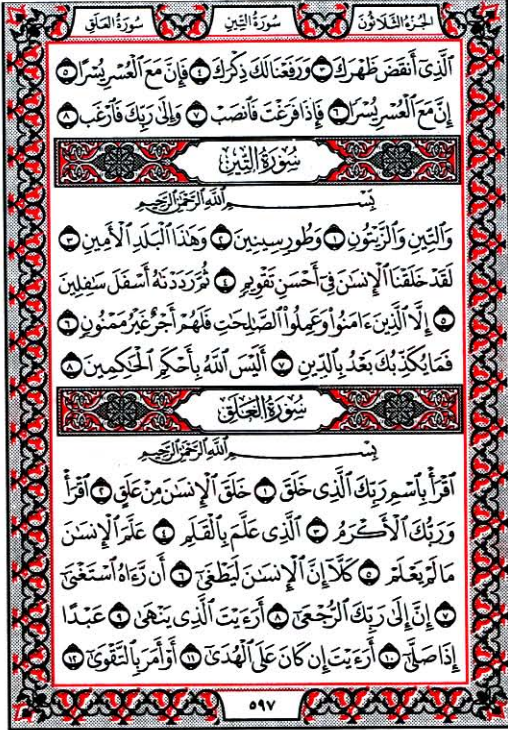 الجزء الثلاثون سورة التين سورة العلق
الَّذِىٓ أَنقَضَ ظَهْرَكَ ٣ وَرَفَعْنَا لَكَ ذِكْرَكَ ٤ فَإِنَّ مَعَ الْعُسْرِ يُسْرًا ٥
إِنَّ مَعَ الْعُسْرِ يُسْرًا ٦ فَإِذَا فَرَغْتَ فَانصَبْ ٧ وَإِلَىٰ رَبِّكَ فَارْغَب ٨
سُورَةُ التِّينِ
بِسْمِ اللَّهِ الرَّحْمَٰنِ الرَّحِيمِ
وَالتِّينِ وَالزَّيْتُونِ ١ وَطُورِ سِينِينَ ٢ وَهَٰذَا الْبَلَدِ الْأَمِينِ ٣
لَقَدْ خَلَقْنَا الْإِنسَٰنَ فِىٓ أَحْسَنِ تَقْوِيمٍ ٤ ثُمَّ رَدَدْنَٰهُ أَسْفَلَ سَٰفِلِينَ
٥ إِلَّا الَّذِينَ ءَامَنُوا وَعَمِلُوا الصَّٰلِحَٰتِ فَلَهُمْ أَجْرٌ غَيْرُ مَمْنُونٍ ٦
فَمَا يُكَذِّبُكَ بَعْدُ بِالدِّينِ ٧ أَلَيْسَ اللَّهُ بِأَحْكَمِ الْحَٰكِمِينَ ٨
سُورَةُ الْعَلَقِ
بِسْمِ اللَّهِ الرَّحْمَٰنِ الرَّحِيمِ
اقْرَأْ بِاسْمِ رَبِّكَ الَّذِى خَلَقَ ١ خَلَقَ الْإِنسَٰنَ مِنْ عَلَقٍ ٢ اقْرَأْ
وَرَبُّكَ الْأَكْرَمُ ٣ الَّذِى عَلَّمَ بِالْقَلَمِ ٤ عَلَّمَ الْإِنسَٰنَ
مَا لَمْ يَعْلَمْ ٥ كَلَّآ إِنَّ الْإِنسَٰنَ لَيَطْغَىٰٓ ٦ أَن رَّءَاهُ اسْتَغْنَىٰٓ
٧ إِنَّ إِلَىٰ رَبِّكَ الرُّجْعَىٰٓ ٨ أَرَءَيْتَ الَّذِى يَنْهَىٰ ٩ عَبْدًا
إِذَا صَلَّىٰٓ ١٠ أَرَءَيْتَ إِن كَانَ عَلَى الْهُدَىٰٓ ١١ أَوْ أَمَرَ بِالتَّقْوَىٰٓ ١٢
٥٩٧